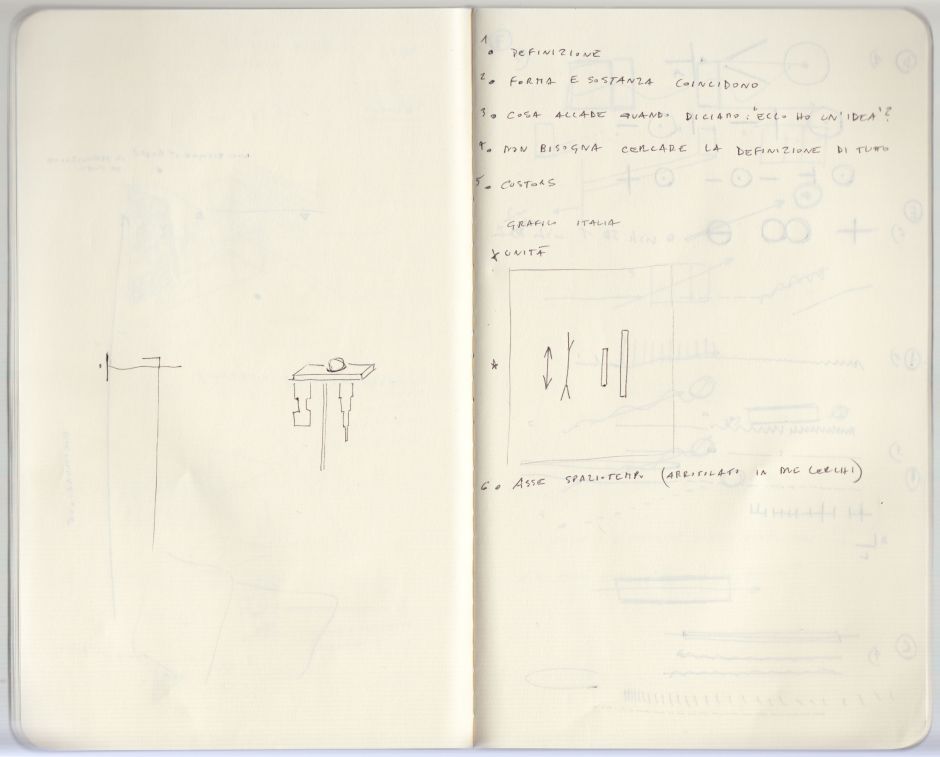 1. DEFINIZIONE
2. FORMA E SOSTANZA COINCIDONO
3. COSA ACCADE QUANDO DICIAMO: "ECCO HO UN'IDEA"?
4. NON BISOGNA CERCARE LA DEFINIZIONE DI TUTTO
5. CUSTORS
GRAFICO ITALIA
* UNITÀ
*
6. ASSE SPAZIOTEMPO (ARROTOLATO IN DUE CERCHI)